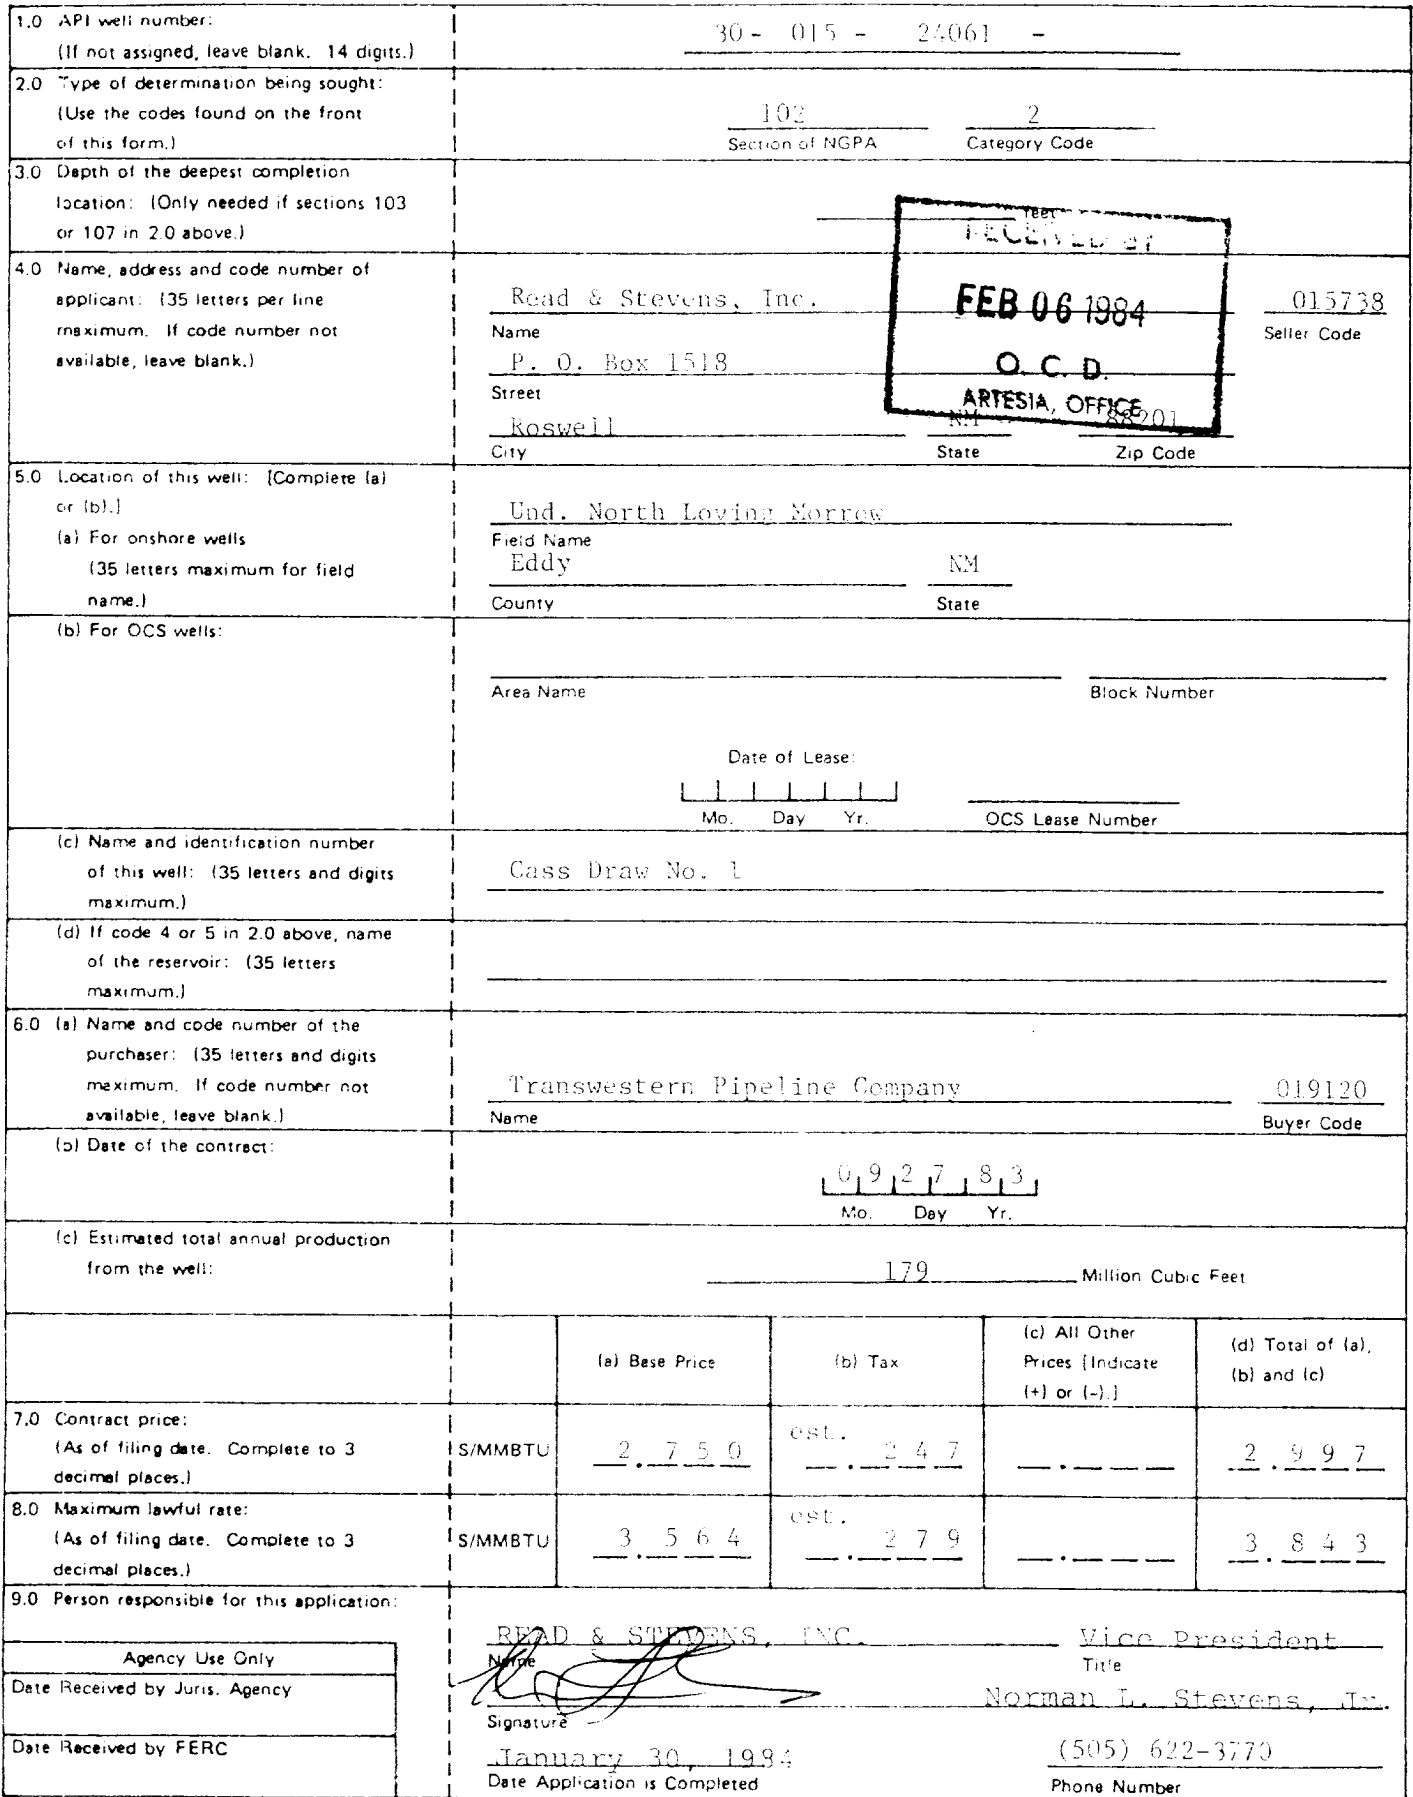 1.0 API well number:
(If not assigned, leave blank. 14 digits.)
30 - 015 - 24061 -
2.0 Type of determination being sought:
(Use the codes found on the front
of this form.)
102 2
Section of NGPA Category Code
3.0 Depth of the deepest completion
location: (Only needed if sections 103
or 107 in 2.0 above.)
feet
RECEIVED BY
FEB 06 1984
O. C. D.
ARTESIA, OFFICE
4.0 Name, address and code number of
applicant: (35 letters per line
maximum. If code number not
available, leave blank.)
Read & Stevens, Inc. 015738
Name Seller Code
P. O. Box 1518
Street
Roswell NM 88201
City State Zip Code
5.0 Location of this well: [Complete (a)
or (b).]
(a) For onshore wells
(35 letters maximum for field
name.)
Und. North Loving Morrow
Field Name
Eddy NM
County State
(b) For OCS wells:
Area Name Block Number
Date of Lease:
Mo. Day Yr. OCS Lease Number
(c) Name and identification number
of this well: (35 letters and digits
maximum.)
Cass Draw No. 1
(d) If code 4 or 5 in 2.0 above, name
of the reservoir: (35 letters
maximum.)
6.0 (a) Name and code number of the
purchaser: (35 letters and digits
maximum. If code number not
available, leave blank.)
Transwestern Pipeline Company 019120
Name Buyer Code
(b) Date of the contract:
0 9 2 7 8 3
Mo. Day Yr.
(c) Estimated total annual production
from the well:
179 Million Cubic Feet
(a) Base Price (b) Tax (c) All Other
Prices [Indicate
(+) or (-).] (d) Total of (a),
(b) and (c)
7.0 Contract price:
(As of filing date. Complete to 3
decimal places.)
S/MMBTU 2.750 est. .247 2.997
8.0 Maximum lawful rate:
(As of filing date. Complete to 3
decimal places.)
S/MMBTU 3.564 est. .279 3.843
9.0 Person responsible for this application:
Agency Use Only
Date Received by Juris. Agency
Date Received by FERC
READ & STEVENS, INC. Vice President
Name Title
Norman L. Stevens, Jr.
Signature
January 30, 1984 (505) 622-3770
Date Application is Completed Phone Number